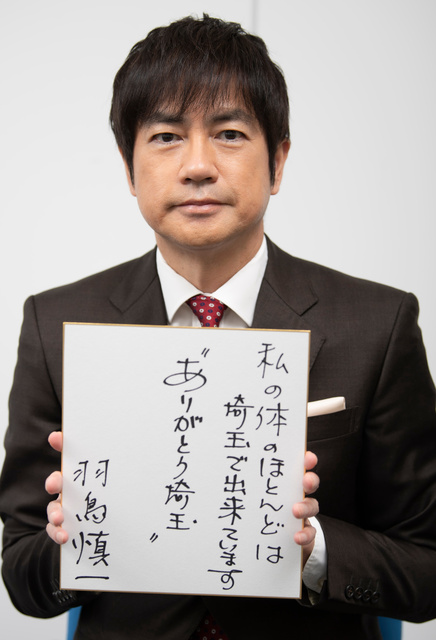 私の体のほとんどは
埼玉で出来ています
“ありがとう埼玉”
羽鳥慎一